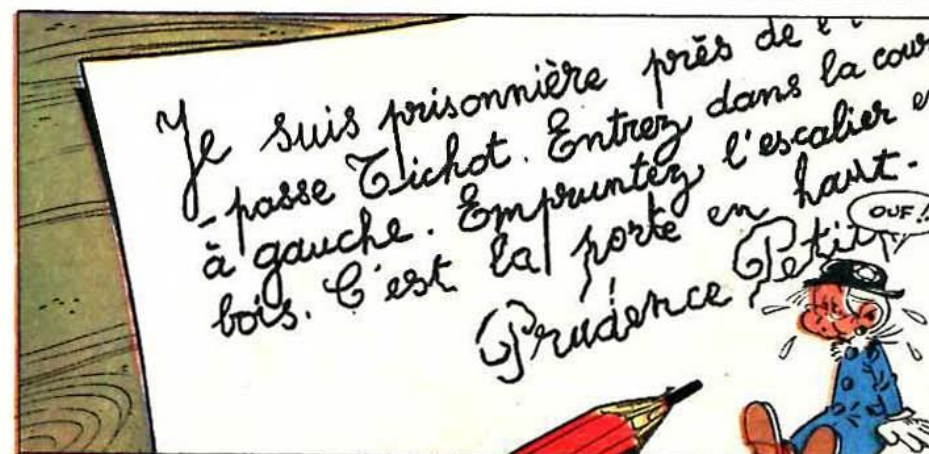 Je suis prisonnière près de l'i
-passe Tichot. Entrez dans la cour
à gauche. Empruntez l'escalier e
bois. C'est la porte en haut.
Prudence Petit
OUF!